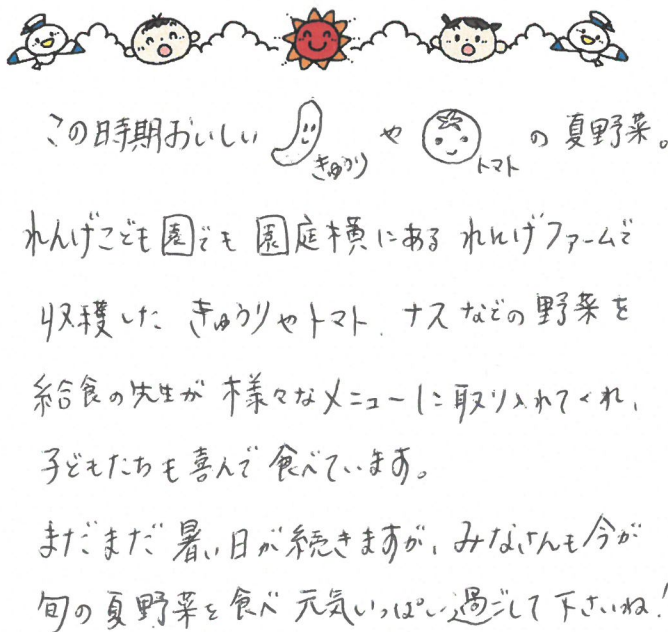 この時期おいしい きゅうり や トマト の 夏野菜。
れんげこども園でも 園庭横にある れんげファームで
収穫した きゅうりやトマト、ナスなどの野菜を
給食の先生が 様々なメニューに取り入れてくれ、
子どもたちも喜んで食べています。
まだまだ暑い日が続きますが、みなさんも今が
旬の夏野菜を食べ 元気いっぱい過ごして下さいね!